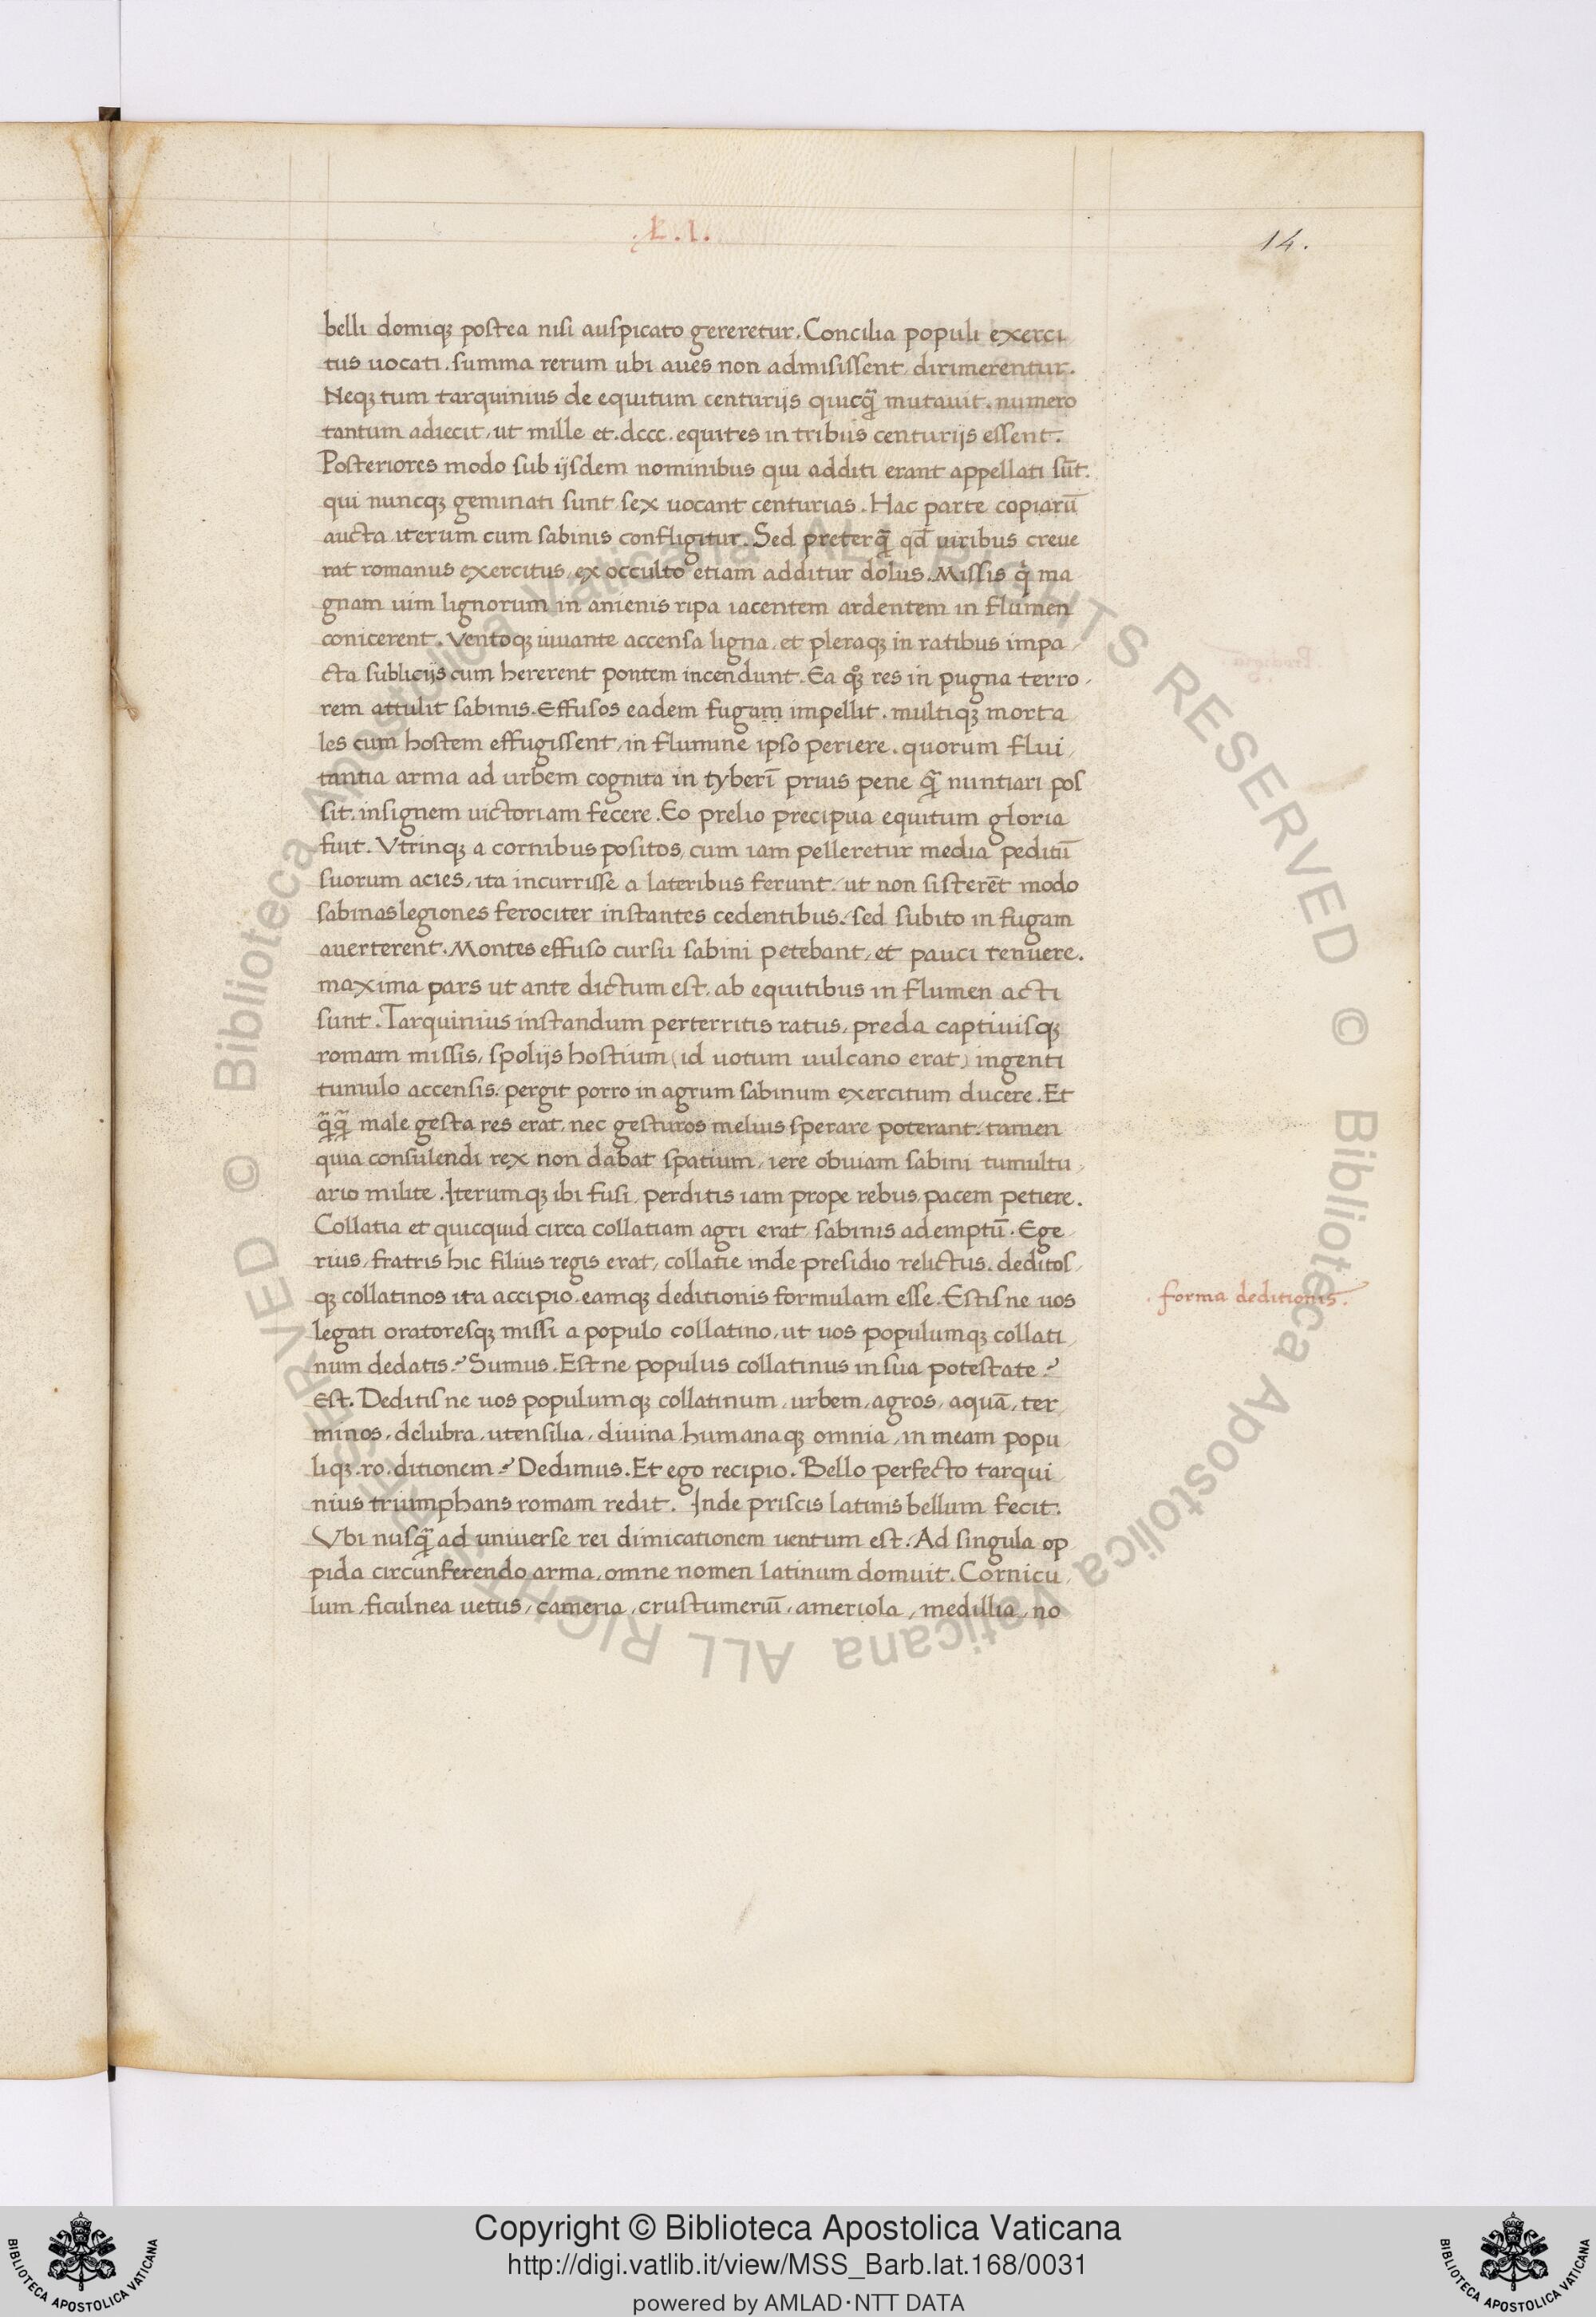 .L.I.
14.
belli domiqꝫ postea nisi auspicato gereretur. Concilia populi exerci
tus uocati. summa rerum ubi aues non admisissent dirimerentur.
Neqꝫ tum tarquinius de equitum centurijs quicq̃ mutauit. numero
tantum adiecit, ut mille et. dccc. equites in tribus centurijs essent.
Posteriores modo sub ijsdem nominibus qui additi erant appellati sūt.
qui nuncqꝫ geminati sunt sex uocant centurias. Hac parte copiarū
aucta iterum cum sabinis confligitur. Sed preterq̃ qđ uiribus creue
rat romanus exercitus, ex occulto etiam additur dolus. Missis q̇ ma
gnam uim lignorum in anienis ripa iacentem ardentem in flumen
conicerent. Ventoqꝫ iuuante accensa ligna, et pleraqꝫ in ratibus impa
cta sublicijs cum hererent pontem incendunt. Ea qꝫ res in pugna terro
rem attulit sabinis. Effusos eadem fugam impellit. multiqꝫ morta
les cum hostem effugissent, in flumine ipso periere. quorum flui
tantia arma ad urbem cognita in tyberī prius pene q̃ nuntiari pos
sit. insignem uictoriam fecere. Eo prelio precipua equitum gloria
fuit. Vtrinqꝫ a cornibus positos, cum iam pelleretur media peditū
suorum acies, ita incurrisse a lateribus ferunt, ut non sisterēt modo
sabinas legiones ferociter instantes cedentibus, sed subito in fugam
auerterent. Montes effuso cursu sabini petebant, et pauci tenuere.
maxima pars ut ante dictum est, ab equitibus in flumen acti
sunt. Tarquinius instandum perterritis ratus, preda captiuisqꝫ
romam missis, spolijs hostium (id uotum uulcano erat) ingenti
tumulo accensis, pergit porro in agrum sabinum exercitum ducere. Et
q̃q̃ male gesta res erat, nec gesturos melius sperare poterant, tamen
quia consulendi rex non dabat spatium, iere obuiam sabini tumultu
ario milite. Iterumqꝫ ibi fusi, perditis iam prope rebus pacem petiere.
Collatia et quicquid circa collatiam agri erat sabinis ademptū. Ege
rius, fratris hic filius regis erat, collatie inde presidio relictus. deditos
qꝫ collatinos ita accipio, eamqꝫ deditionis formulam esse. Estis ne uos
forma deditionis.
legati oratoresqꝫ missi a populo collatino, ut uos populumqꝫ collati
num dedatis? Sumus. Est ne populus collatinus in sua potestate?
Est. Deditis ne uos populumqꝫ collatinum, urbem, agros, aquā, ter
minos, delubra, utensilia, diuina humanaqꝫ omnia, in meam popu
liqꝫ .ro. ditionem? Dedimus. Et ego recipio. Bello perfecto tarqui
nius triumphans romam redit. Inde priscis latinis bellum fecit.
Vbi nusq̃ ad uniuerse rei dimicationem uentum est. Ad singula op
pida circunferendo arma, omne nomen latinum domuit. Cornicu
lum, ficulnea uetus, cameria, crustumeriū, ameriola, medillia, no
© Biblioteca Apostolica Vaticana ALL RIGHTS RESERVED © Biblioteca Apostolica Vaticana ALL RIGHTS RESERVED
Copyright © Biblioteca Apostolica Vaticana
http://digi.vatlib.it/view/MSS_Barb.lat.168/0031
powered by AMLAD·NTT DATA
BIBLIOTECA APOSTOLICA VATICANA
BIBLIOTECA APOSTOLICA VATICANA